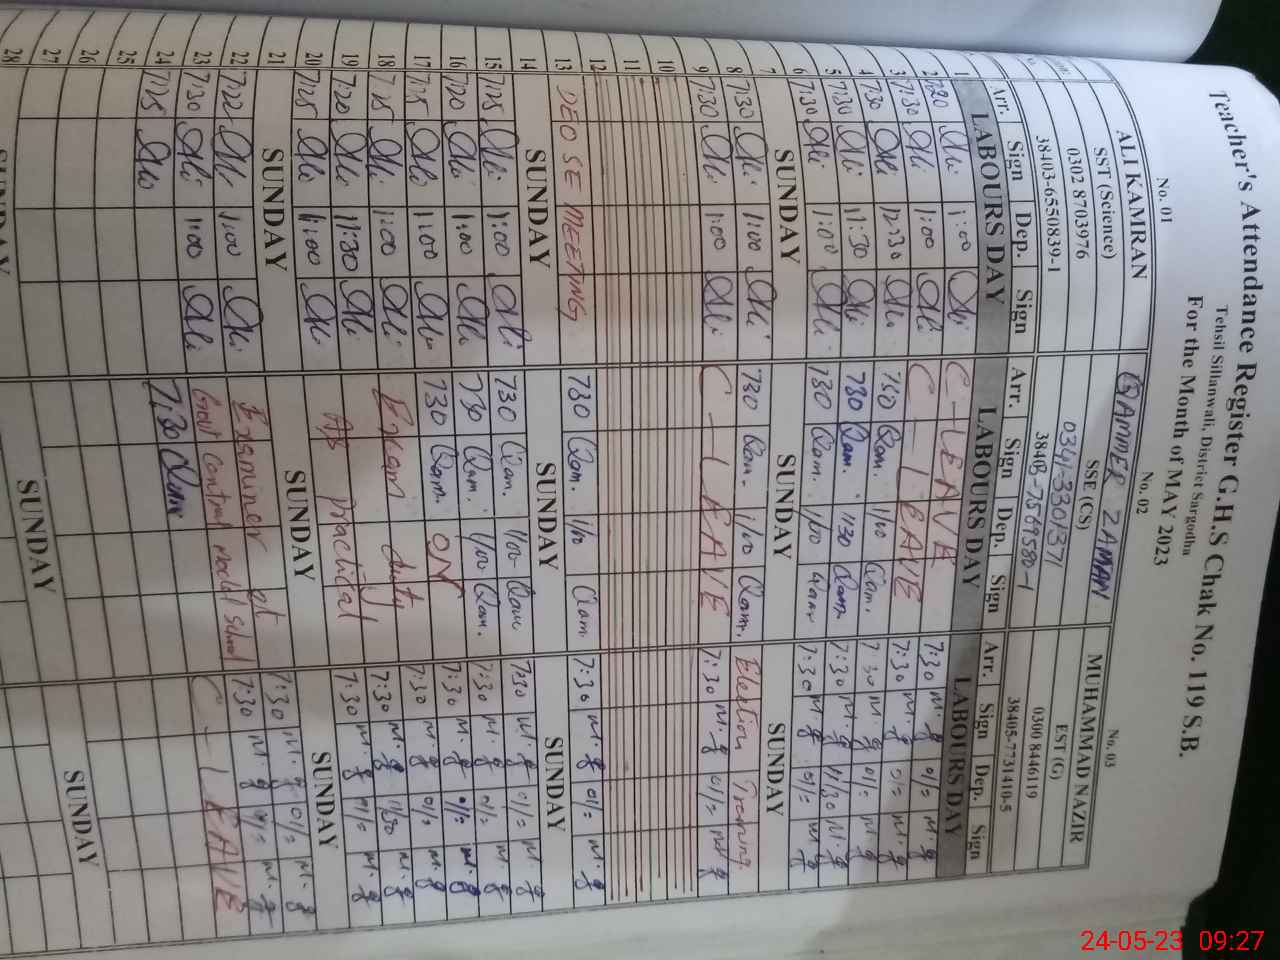 Teacher's Attendance Register G.H.S Chak No. 119 S.B.
Tehsil Sillanwali, District Sargodha
For the Month of MAY 2023
No. 01 No. 02 No. 03
ALI KAMRAN QAMMER ZAMAN MUHAMMAD NAZIR
SST (Science) SSE (CS) EST (G)
0302 8703976 0341-3301371 0300 8446119
38403-6550839-1 38403-7561580-1 38405-7731410-5
Arr. Sign Dep. Sign Arr. Sign Dep. Sign Arr. Sign Dep. Sign
1 LABOURS DAY LABOURS DAY LABOURS DAY
2 7:30 Ali 1:00 Ali C-LEAVE 7:30 M.
3 7:30 Ali 1:00 Ali C-LEAVE 7:30 M.
4 7:30 Ali 12:30 Ali 730 Qam. 1/00 Qam. 7:30 M.
5 7:30 Ali 11:30 Ali 730 Qam. 1130 Qam. 7:30 M. 11/30 M.
6 7:30 Ali 1:00 Ali 730 Qam. 1/00 Qam. 7:30 M.
7 SUNDAY SUNDAY SUNDAY
8 7:30 Ali 1:00 Ali 730 Qam. 1/00 Qam. Election Training
9 7:30 Ali 1:00 Ali C-LEAVE 7:30 M.
10
11
12
13 DEO SE MEETING 730 Qam. 1/00 Qam. 7:30 M.
14 SUNDAY SUNDAY SUNDAY
15 7:15 Ali 1:00 Ali 730 Qam. 1/00 Qam. 7:30 M.
16 7:20 Ali 1:00 Ali 730 Qam. 1/00 Qam. 7:30 M.
17 7:15 Ali 1:00 Ali 730 Qam. ON 7:30 M.
18 7:15 Ali 1:00 Ali Exam duty 7:30 M.
19 7:20 Ali 11:30 Ali practical 7:30 M. 11:30 M.
20 7:15 Ali 1:00 Ali 7:30 M.
21 SUNDAY SUNDAY SUNDAY
22 7:20 Ali 1:00 Ali Examiner at 7:30 M.
23 7:30 Ali 1:00 Ali Govt central model school 7:30 M.
24 7:15 Ali 7:30 Qam C-LEAVE
25
26
27
28 SUNDAY SUNDAY SUNDAY
24-05-23 09:27